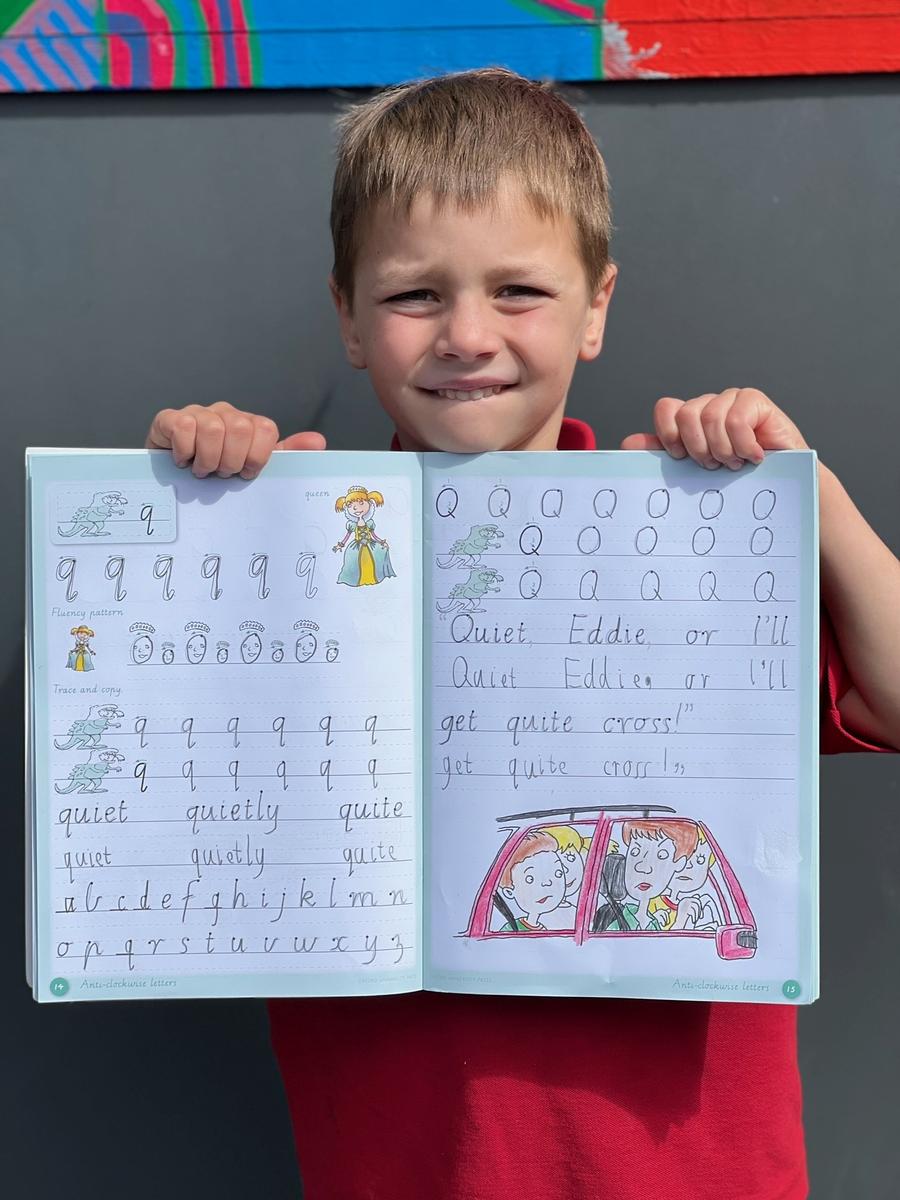 queen
q
q q q q q q
Fluency pattern
Trace and copy.
q q q q q q
q q q q q q
quiet quietly quite
quiet quietly quite
a b c d e f g h i j k l m n
o p q r s t u v w x y z
14 Anti-clockwise letters
Q Q Q Q Q Q Q
Q O O O O
Q Q Q Q Q
"Quiet, Eddie, or I'll
Quiet Eddie, or I'll
get quite cross!"
get quite cross!,,
Anti-clockwise letters 15